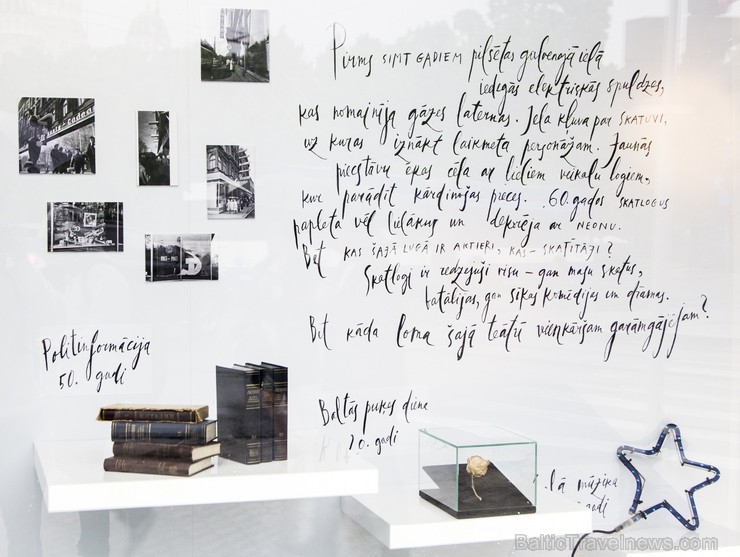 Pirms SIMT GADIEM pilsētas galvenajā ielā
iedegās elektriskās spuldzes,
kas nomainīja gāzes laternas. Iela kļuva par SKATUVI,
uz kuras iznākt laikmeta personāžam. Jaunās
piecstāvu ēkas cēla ar lieliem veikalu logiem,
kur parādīt kārdinošas preces. 60.gados SKATLOGUS
papleta vēl lielākus un dekorēja ar NEONU.
Bet KAS ŠAJĀ LUGĀ IR AKTIERI, KAS - SKATĪTĀJI?
Skatlogi ir redzējuši visu - gan masu skatus,
batālijas, gan sīkas komēdijas un drāmas.
Bet kāda loma šajā teātrī vienkāršam garāmgājējam?
Politinformācija
50. gadi
Baltās puķes diena
20. gadi
mūzika
gadi
BalticTravelnews.com ©